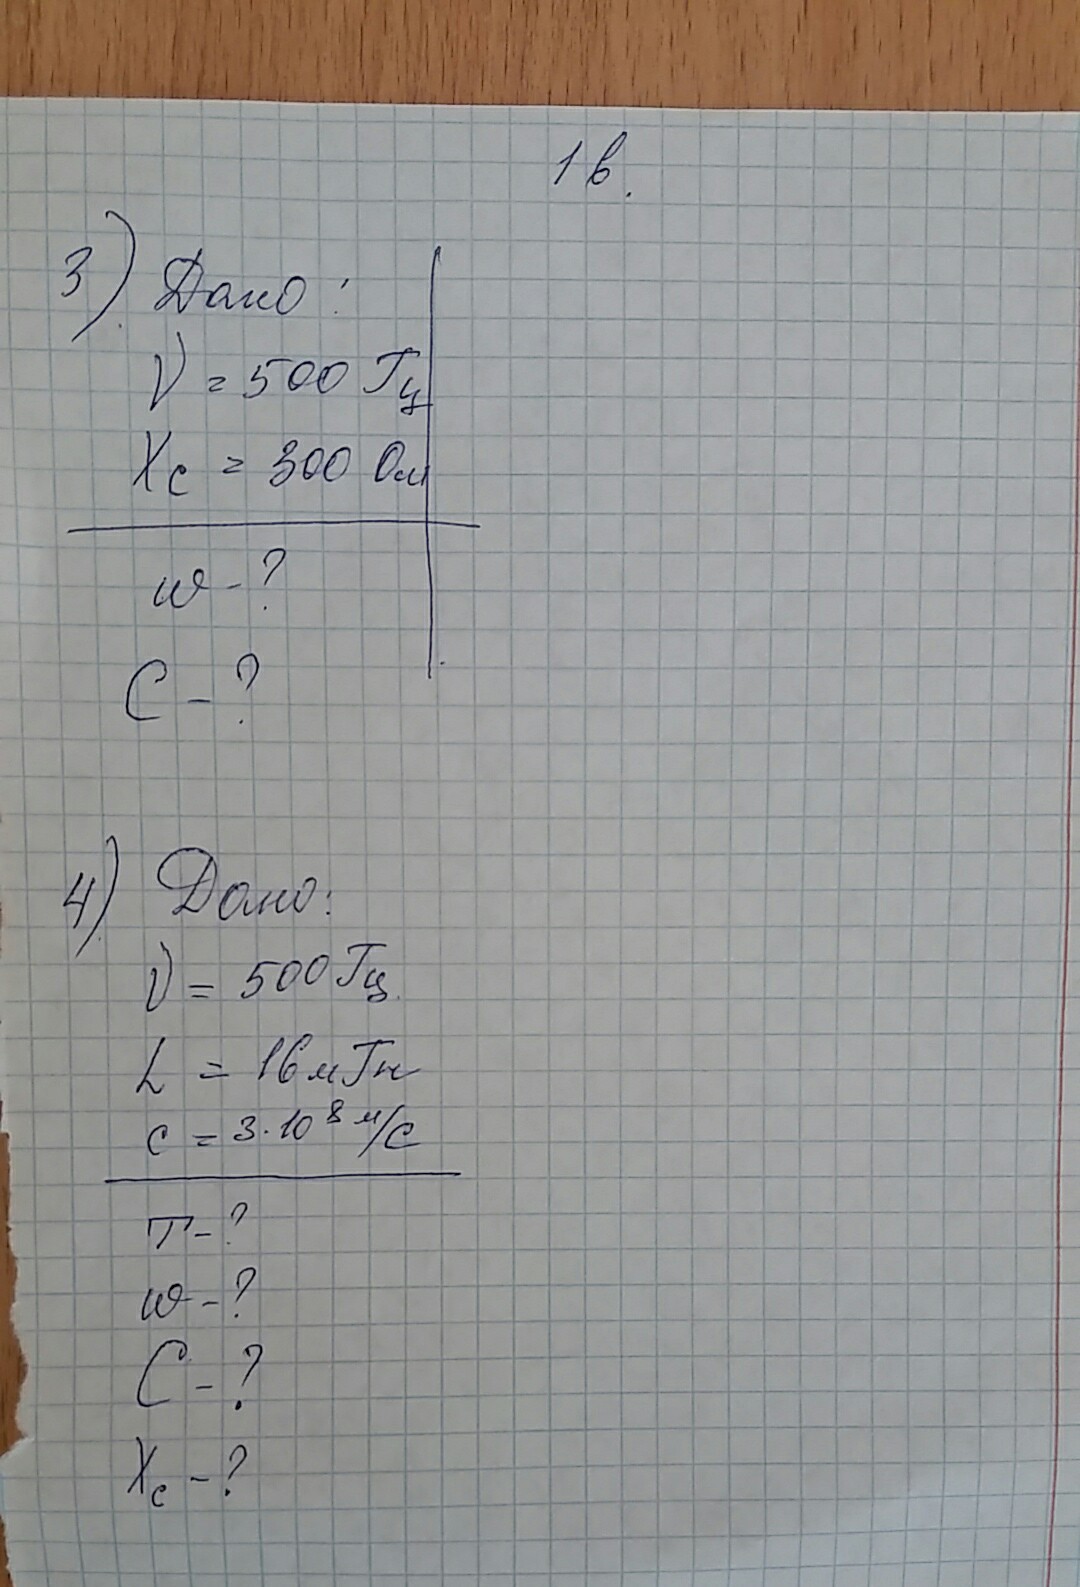 1в.
3) Дано:
ν = 500 Гц
Xc = 300 Ом
w - ?
C - ?
4) Дано:
ν = 500 Гц
L = 16 мГн
c = 3·10⁸ м/с
T - ?
w - ?
C - ?
Xc - ?